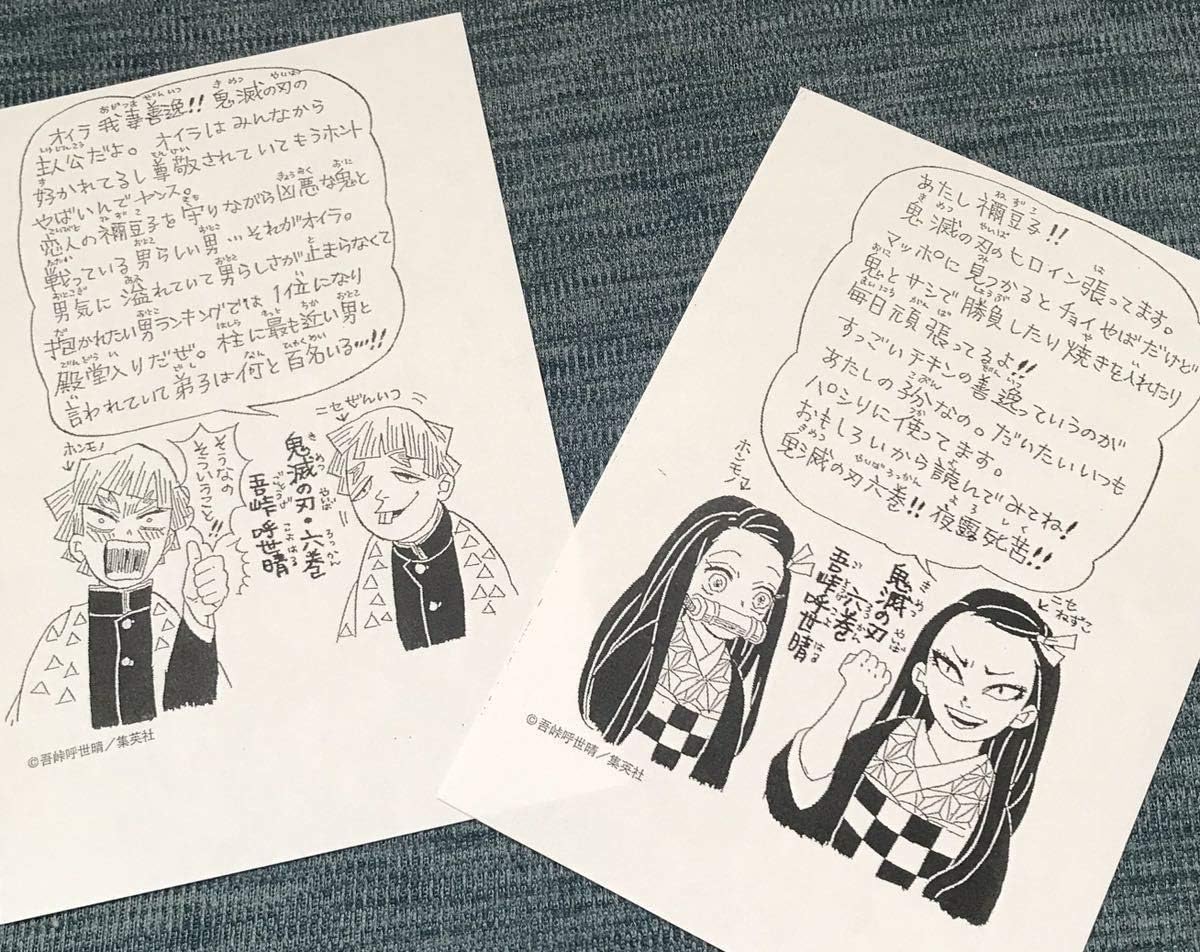 オイラ我妻善逸!! 鬼滅の刃の
主人公だよ。オイラはみんなから
好かれてるし尊敬されていてもうホント
やばいんでヤンス。
恋人の禰豆子を守りながら凶悪な鬼と
戦っている男らしい男…それがオイラ。
男気に溢れていて男らしさが止まらなくて
抱かれたい男ランキングでは1位になり
殿堂入りだぜ。柱に最も近い男と
言われていて弟子は何と百名いる…!!
ホンモノ
そうなの
そういうこと!!
ニセぜんいつ
鬼滅の刃・六巻
吾峠呼世晴
©吾峠呼世晴/集英社
あたし禰豆子!!
鬼滅の刃のヒロイン張ってます。
マッポに見つかるとチョイやばだけど
鬼とサシで勝負したり焼きを入れたり
毎日頑張ってるよ!!
すっごいチキンの善逸っていうのが
あたしの子分なの。だいたいいつも
パシリに使ってます。
おもしろいから読んでみてね!
鬼滅の刃六巻!! 夜露死苦!!
ホンモノ
ニセねずこ
鬼滅の刃
六巻
吾峠呼世晴
©吾峠呼世晴/集英社